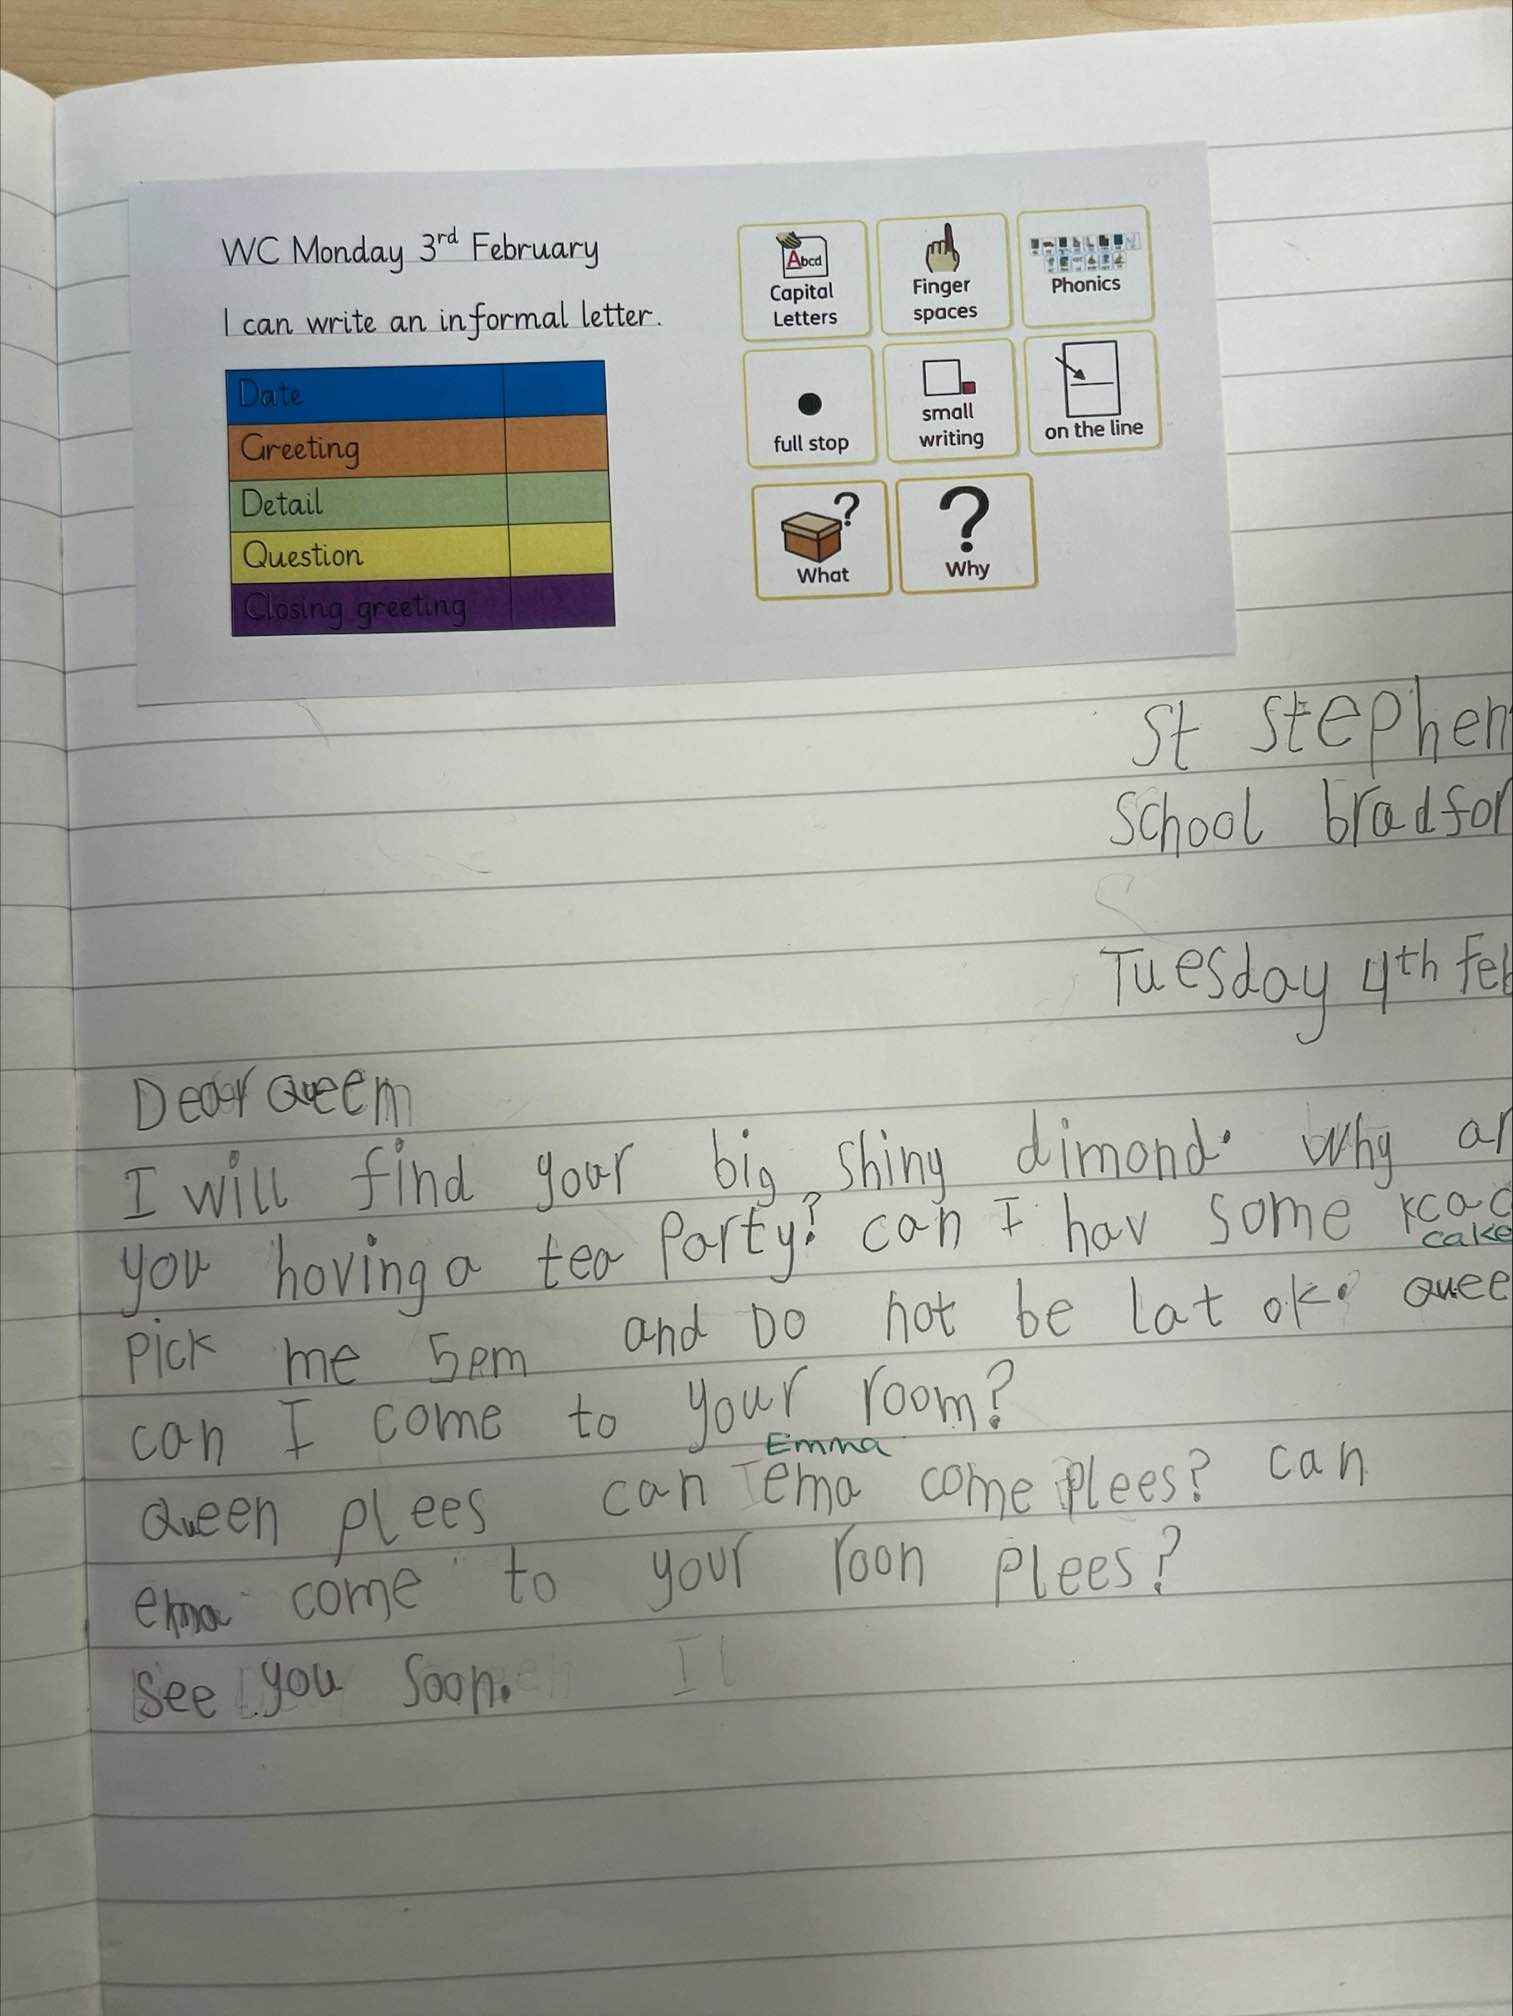 WC Monday 3rd February
I can write an informal letter.
Date
Greeting
Detail
Question
Closing greeting
Abcd
Capital
Letters
Finger
spaces
Phonics
full stop
small
writing
on the line
?
What
?
Why
St stephen
School bradfor
Tuesday 4th feb
Dear Queem
I will find your big, shing dimond. Why ar
you hoving a tea Party? can I hav some kcac
cake
Pick me 5pm and Do not be lat ok. quee
can I come to your room?
Emma
Queen plees can ema come Plees? can
ema come to your roon Plees?
See you soon.